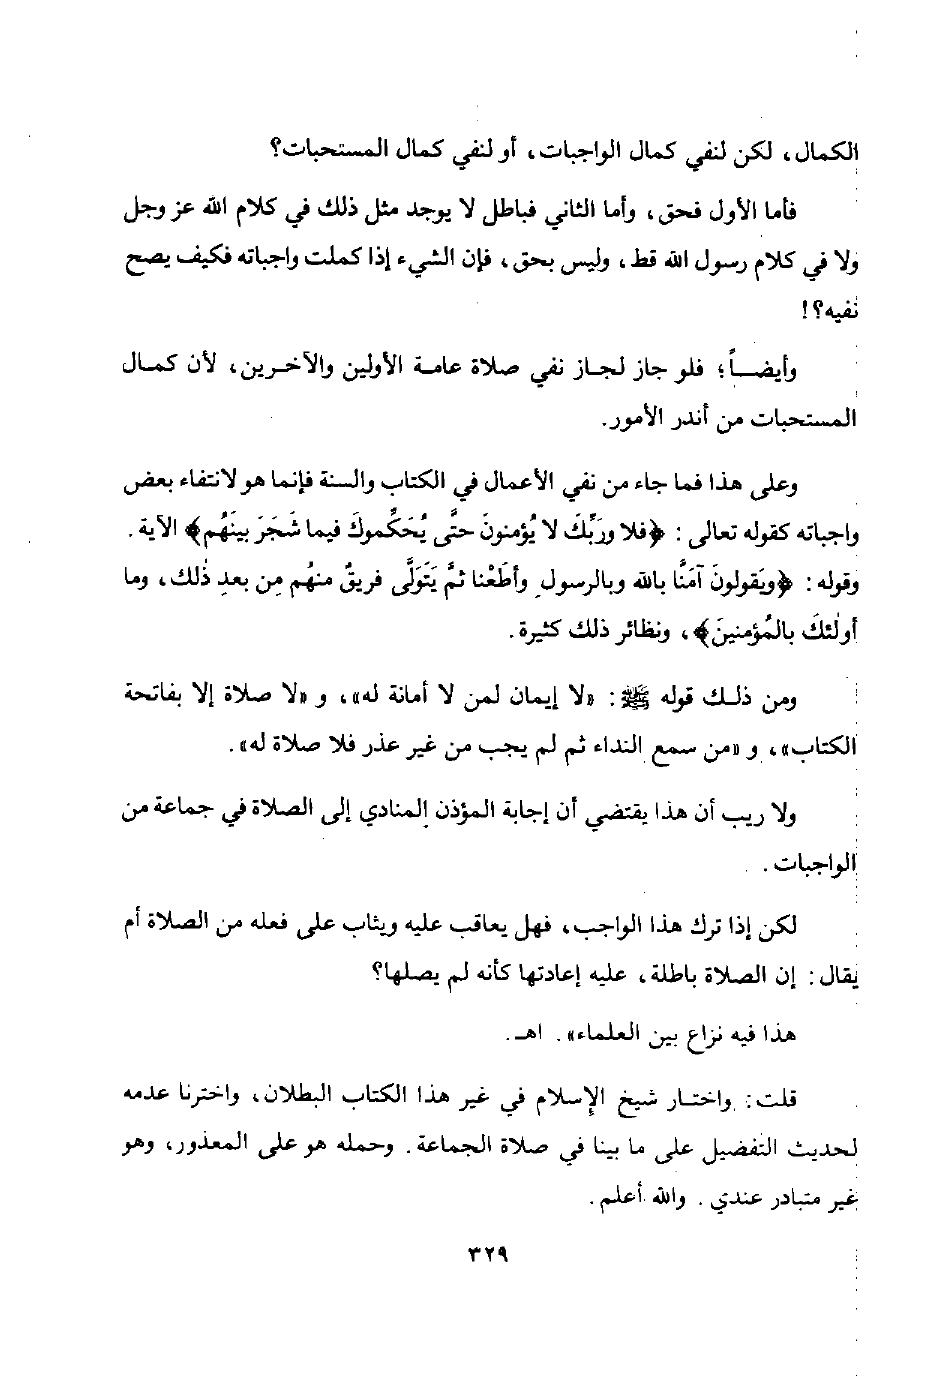 الكمال، لكن لنفي كمال الواجبات، أو لنفي كمال المستحبات؟
فأما الأول فحق، وأما الثاني فباطل لا يوجد مثل ذلك في كلام الله عز وجل
ولا في كلام رسول الله قط، وليس بحق، فإن الشيء إذا كملت واجباته فكيف يصح
نفيه؟!
وأيضـــاً؛ فلو جاز لجـاز نفي صلاة عامـة الأولين والآخـرين، لأن كمـال
المستحبات من أندر الأمور.
وعلى هذا فما جاء من نفي الأعمال في الكتاب والسنة فإنما هو لانتفاء بعض
واجباته كقوله تعالى: ﴿فلا ورَبِّكَ لا يُؤمنونَ حتَّى يُحَكِّموكَ فيما شَجَرَ بينَهُم﴾ الآية.
وقوله: ﴿ويَقولونَ آمَنَّا بالله وبالرسولِ وأطَعْنا ثمَّ يَتَوَلَّى فريقٌ منهُم مِن بعدِ ذٰلك، وما
أولٰئكَ بالمُؤمنينَ﴾، ونظائر ذلك كثيرة.
ومن ذلـك قوله ﷺ: «لا إيمان لمن لا أمانة له»، و «لا صلاة إلا بفاتحة
الكتاب»، و «من سمع النداء ثم لم يجب من غير عذر فلا صلاة له».
ولا ريب أن هذا يقتضي أن إجابة المؤذن المنادي إلى الصلاة في جماعة من
الواجبات.
لكن إذا ترك هذا الواجب، فهل يعاقب عليه ويثاب على فعله من الصلاة أم
يقال: إن الصلاة باطلة، عليه إعادتها كأنه لم يصلها؟
هذا فيه نزاع بين العلماء». اهـ.
قلت: واختـار شيخ الإسلام في غير هذا الكتاب البطلان، واخترنا عدمه
لحديث التفضيل على ما بينا في صلاة الجماعة. وحمله هو على المعذور، وهو
غير متبادر عندي. والله أعلم.
٣٢٩